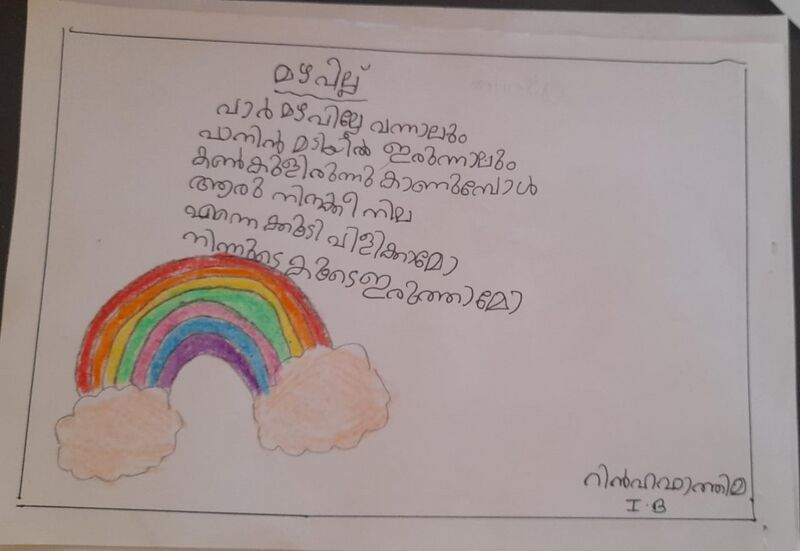 മഴവില്ല്
വാർ മഴവില്ലേ വന്നാലും
വാനിൻ മടിയിൽ ഇരുന്നാലും
കൺകുളിരുന്നു കാണുമ്പോൾ
ആരു നിനക്കീ നില
എന്നെക്കൂടി വിളിക്കാമോ
നിന്നുടെ കൂടെ ഇരുത്താമോ
റിൻഹഫാത്തിമ
I.B